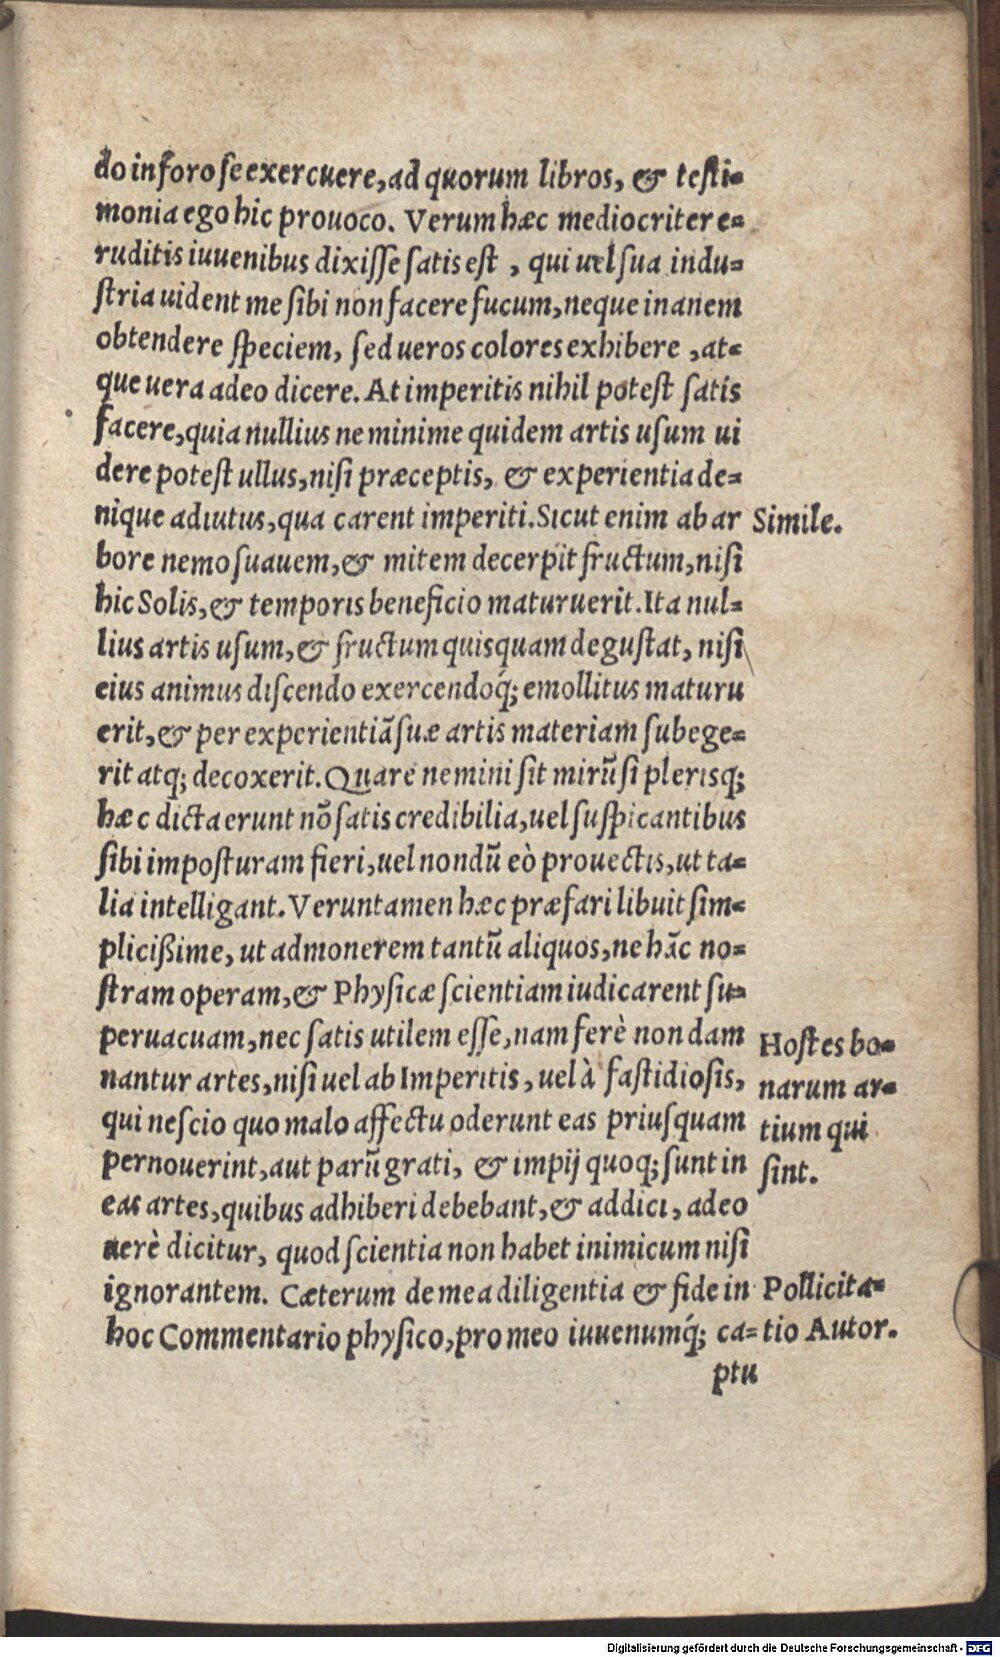 do in foro se exercuere, ad quorum libros, & testi-
monia ego hic prouoco. Verum hæc mediocriter e-
ruditis iuuenibus dixisse satis est, qui uel sua indu-
stria uident me sibi non facere fucum, neque inanem
obtendere speciem, sed ueros colores exhibere, at-
que uera adeo dicere. At imperitis nihil potest satis
facere, quia nullius ne minime quidem artis usum ui
dere potest ullus, nisi præceptis, & experientia de-
nique adiutus, qua carent imperiti. Sicut enim ab ar
Simile.
bore nemo suauem, & mitem decerpit fructum, nisi
hic Solis, & temporis beneficio maturuerit. Ita nul-
lius artis usum, & fructum quisquam degustat, nisi
eius animus discendo exercendoq́; emollitus maturu
erit, & per experientiã suæ artis materiam subege-
rit atq; decoxerit. Quare nemini sit mirũ si plerisq;
hæc dicta erunt nõ satis credibilia, uel suspicantibus
sibi imposturam fieri, uel nondũ eò prouectis, ut ta-
lia intelligant. Veruntamen hæc præfari libuit sim-
plicißime, ut admonerem tantũ aliquos, ne hãc no-
stram operam, & Physicæ scientiam iudicarent su-
peruacuam, nec satis utilem esse, nam ferè non dam
nantur artes, nisi uel ab Imperitis, uel à fastidiosis,
qui nescio quo malo affectu oderunt eas priusquam
pernouerint, aut parũ grati, & impij quoq; sunt in
eas artes, quibus adhiberi debebant, & addici, adeo
uerè dicitur, quod scientia non habet inimicum nisi
ignorantem. Cæterum de mea diligentia & fide in
hoc Commentario physico, pro meo iuuenumq́; ca-
Hostes bo-
narum ar-
tium qui
sint.
Pollicita-
tio Autor.
ptu
Digitalisierung gefördert durch die Deutsche Forschungsgemeinschaft - DFG